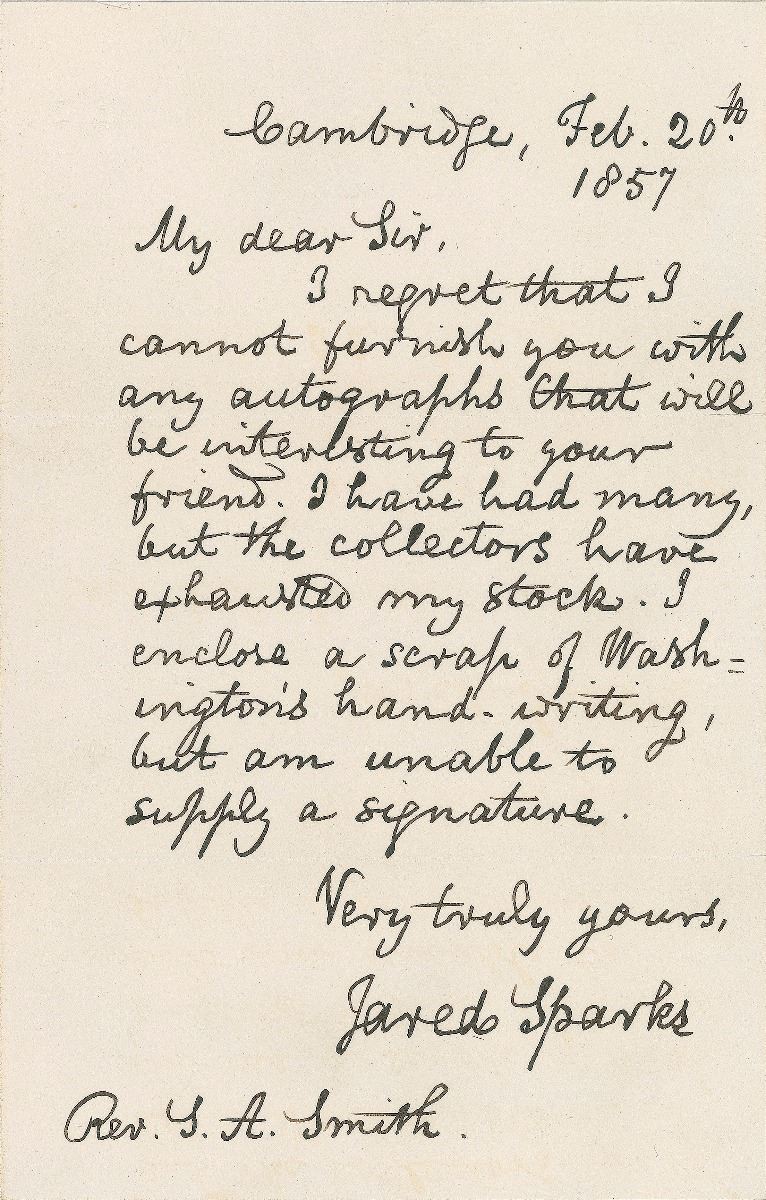 Cambridge, Feb. 20th.
1857
My dear Sir,
I regret that I
cannot furnish you with
any autographs that will
be interesting to your
friend. I have had many,
but the collectors have
exhausted my stock. I
enclose a scrap of Wash=
ington's hand-writing,
but am unable to
supply a signature.
Very truly yours,
Jared Sparks
Rev. S. A. Smith.